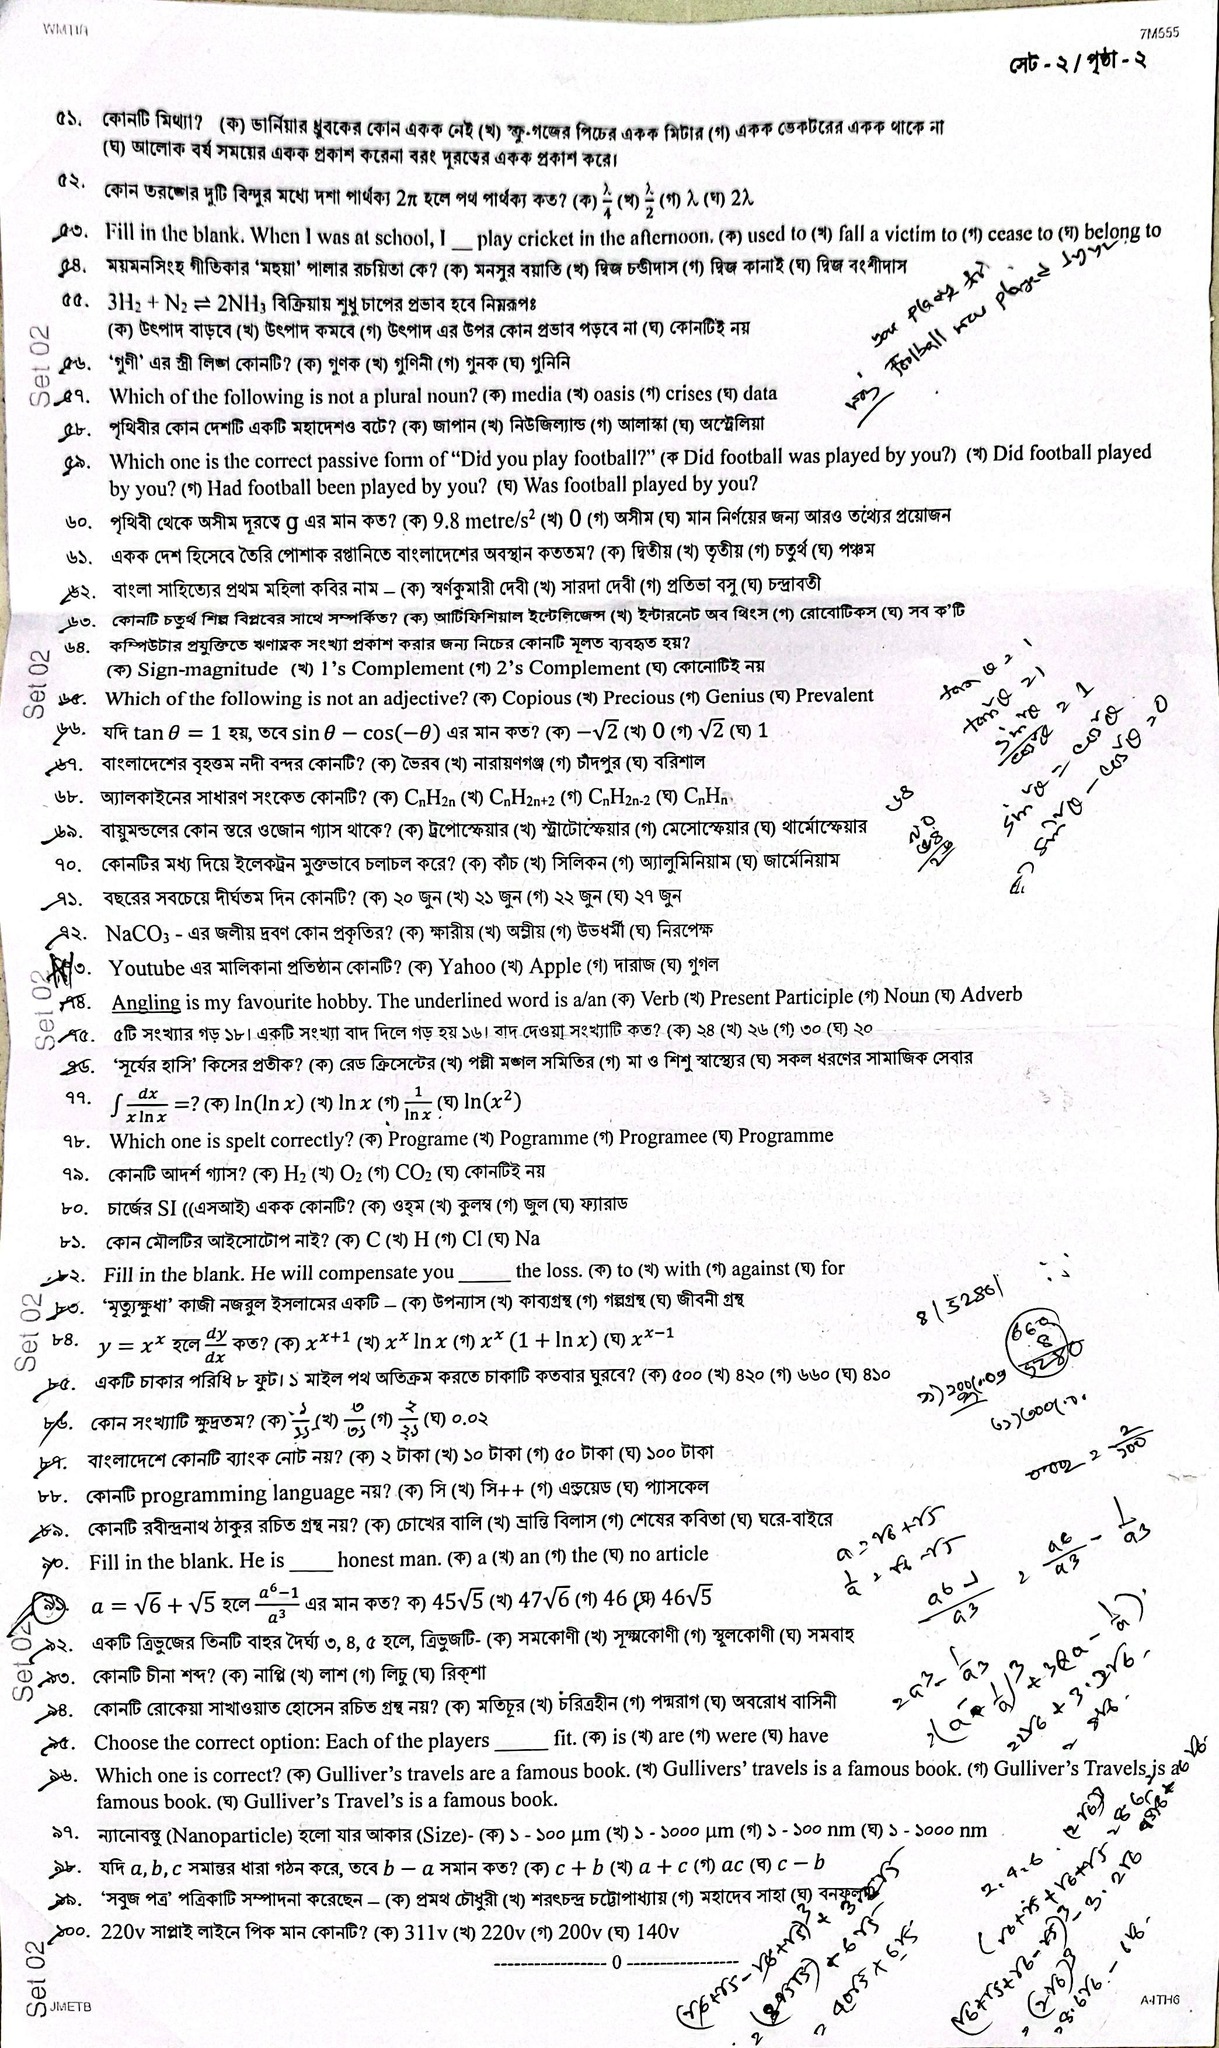 WM11/1
7M555
সেট - ২ / পৃষ্ঠা - ২
৫১. কোনটি মিথ্যা? (ক) ভার্নিয়ার ধ্রুবকের কোন একক নেই (খ) স্ক্রু-গজের পিচের একক মিটার (গ) একক ভেকটরের একক থাকে না
(ঘ) আলোক বর্ষ সময়ের একক প্রকাশ করেনা বরং দূরত্বের একক প্রকাশ করে।
৫২. কোন তরঙ্গের দুটি বিন্দুর মধ্যে দশা পার্থক্য 2π হলে পথ পার্থক্য কত? (ক) λ/4 (খ) λ/2 (গ) λ (ঘ) 2λ
৫৩. Fill in the blank. When I was at school, I __ play cricket in the afternoon. (ক) used to (খ) fall a victim to (গ) cease to (ঘ) belong to
৫৪. ময়মনসিংহ গীতিকার 'মহুয়া' পালার রচয়িতা কে? (ক) মনসুর বয়াতি (খ) দ্বিজ চণ্ডীদাস (গ) দ্বিজ কানাই (ঘ) দ্বিজ বংশীদাস
৫৫. 3H₂ + N₂ ⇌ 2NH₃ বিক্রিয়ায় শুধু চাপের প্রভাব হবে নিম্নরূপঃ
(ক) উৎপাদ বাড়বে (খ) উৎপাদ কমবে (গ) উৎপাদ এর উপর কোন প্রভাব পড়বে না (ঘ) কোনটিই নয়
Set 02
৫৬. 'গুণী' এর স্ত্রী লিঙ্গ কোনটি? (ক) গুণক (খ) গুণিনী (গ) গুনক (ঘ) গুনিনি
৫৭. Which of the following is not a plural noun? (ক) media (খ) oasis (গ) crises (ঘ) data
৫৮. পৃথিবীর কোন দেশটি একটি মহাদেশও বটে? (ক) জাপান (খ) নিউজিল্যান্ড (গ) আলাস্কা (ঘ) অস্ট্রেলিয়া
৫৯. Which one is the correct passive form of “Did you play football?” (ক Did football was played by you?) (খ) Did football played
by you? (গ) Had football been played by you? (ঘ) Was football played by you?
৬০. পৃথিবী থেকে অসীম দূরত্বে g এর মান কত? (ক) 9.8 metre/s² (খ) 0 (গ) অসীম (ঘ) মান নির্ণয়ের জন্য আরও তথ্যের প্রয়োজন
৬১. একক দেশ হিসেবে তৈরি পোশাক রপ্তানিতে বাংলাদেশের অবস্থান কততম? (ক) দ্বিতীয় (খ) তৃতীয় (গ) চতুর্থ (ঘ) পঞ্চম
৬২. বাংলা সাহিত্যের প্রথম মহিলা কবির নাম – (ক) স্বর্ণকুমারী দেবী (খ) সারদা দেবী (গ) প্রতিভা বসু (ঘ) চন্দ্রাবতী
৬৩. কোনটি চতুর্থ শিল্প বিপ্লবের সাথে সম্পর্কিত? (ক) আর্টিফিশিয়াল ইন্টেলিজেন্স (খ) ইন্টারনেট অব থিংস (গ) রোবোটিকস (ঘ) সব ক'টি
৬৪. কম্পিউটার প্রযুক্তিতে ঋণাত্নক সংখ্যা প্রকাশ করার জন্য নিচের কোনটি মূলত ব্যবহৃত হয়?
(ক) Sign-magnitude (খ) 1's Complement (গ) 2's Complement (ঘ) কোনোটিই নয়
Set 02
৬৫. Which of the following is not an adjective? (ক) Copious (খ) Precious (গ) Genius (ঘ) Prevalent
৬৬. যদি tan θ = 1 হয়, তবে sin θ − cos(−θ) এর মান কত? (ক) −√2 (খ) 0 (গ) √2 (ঘ) 1
৬৭. বাংলাদেশের বৃহত্তম নদী বন্দর কোনটি? (ক) ভৈরব (খ) নারায়ণগঞ্জ (গ) চাঁদপুর (ঘ) বরিশাল
৬৮. অ্যালকাইনের সাধারণ সংকেত কোনটি? (ক) CₙH₂ₙ (খ) CₙH₂ₙ₊₂ (গ) CₙH₂ₙ₋₂ (ঘ) CₙHₙ
৬৯. বায়ুমন্ডলের কোন স্তরে ওজোন গ্যাস থাকে? (ক) ট্রপোস্ফেয়ার (খ) স্ট্রাটোস্ফেয়ার (গ) মেসোস্ফেয়ার (ঘ) থার্মোস্ফেয়ার
৭০. কোনটির মধ্য দিয়ে ইলেকট্রন মুক্তভাবে চলাচল করে? (ক) কাঁচ (খ) সিলিকন (গ) অ্যালুমিনিয়াম (ঘ) জার্মেনিয়াম
৭১. বছরের সবচেয়ে দীর্ঘতম দিন কোনটি? (ক) ২০ জুন (খ) ২১ জুন (গ) ২২ জুন (ঘ) ২৭ জুন
৭২. NaCO₃ - এর জলীয় দ্রবণ কোন প্রকৃতির? (ক) ক্ষারীয় (খ) অম্লীয় (গ) উভধর্মী (ঘ) নিরপেক্ষ
৭৩. Youtube এর মালিকানা প্রতিষ্ঠান কোনটি? (ক) Yahoo (খ) Apple (গ) দারাজ (ঘ) গুগল
Set 02
৭৪. Angling is my favourite hobby. The underlined word is a/an (ক) Verb (খ) Present Participle (গ) Noun (ঘ) Adverb
৭৫. ৫টি সংখ্যার গড় ১৮। একটি সংখ্যা বাদ দিলে গড় হয় ১৬। বাদ দেওয়া সংখ্যাটি কত? (ক) ২৪ (খ) ২৬ (গ) ৩০ (ঘ) ২০
৭৬. 'সূর্যের হাসি' কিসের প্রতীক? (ক) রেড ক্রিসেন্টের (খ) পল্লী মঙ্গল সমিতির (গ) মা ও শিশু স্বাস্থ্যের (ঘ) সকল ধরণের সামাজিক সেবার
৭৭. ∫ dx/(x ln x) =? (ক) ln(ln x) (খ) ln x (গ) 1/ln x (ঘ) ln(x²)
৭৮. Which one is spelt correctly? (ক) Programe (খ) Pogramme (গ) Programee (ঘ) Programme
৭৯. কোনটি আদর্শ গ্যাস? (ক) H₂ (খ) O₂ (গ) CO₂ (ঘ) কোনটিই নয়
৮০. চার্জের SI ((এসআই) একক কোনটি? (ক) ওহ্‌ম (খ) কুলম্ব (গ) জুল (ঘ) ফ্যারাড
৮১. কোন মৌলটির আইসোটোপ নাই? (ক) C (খ) H (গ) Cl (ঘ) Na
৮২. Fill in the blank. He will compensate you _____ the loss. (ক) to (খ) with (গ) against (ঘ) for
৮৩. 'মৃত্যুক্ষুধা' কাজী নজরুল ইসলামের একটি – (ক) উপন্যাস (খ) কাব্যগ্রন্থ (গ) গল্পগ্রন্থ (ঘ) জীবনী গ্রন্থ
Set 02
৮৪. y = xˣ হলে dy/dx কত? (ক) xˣ⁺¹ (খ) xˣ ln x (গ) xˣ (1 + ln x) (ঘ) xˣ⁻¹
৮৫. একটি চাকার পরিধি ৮ ফুট। ১ মাইল পথ অতিক্রম করতে চাকাটি কতবার ঘুরবে? (ক) ৫০০ (খ) ৪২০ (গ) ৬৬০ (ঘ) ৪১০
৮৬. কোন সংখ্যাটি ক্ষুদ্রতম? (ক) ১/১১ (খ) ৩/৩১ (গ) ২/২১ (ঘ) ০.০২
৮৭. বাংলাদেশে কোনটি ব্যাংক নোট নয়? (ক) ২ টাকা (খ) ১০ টাকা (গ) ৫০ টাকা (ঘ) ১০০ টাকা
৮৮. কোনটি programming language নয়? (ক) সি (খ) সি++ (গ) এন্ড্রয়েড (ঘ) প্যাসকেল
৮৯. কোনটি রবীন্দ্রনাথ ঠাকুর রচিত গ্রন্থ নয়? (ক) চোখের বালি (খ) ভ্রান্তি বিলাস (গ) শেষের কবিতা (ঘ) ঘরে-বাইরে
৯০. Fill in the blank. He is ____ honest man. (ক) a (খ) an (গ) the (ঘ) no article
৯১. a = √6 + √5 হলে (a⁶−1)/a³ এর মান কত? ক) 45√5 (খ) 47√6 (গ) 46 (ঘ) 46√5
Set 02
৯২. একটি ত্রিভুজের তিনটি বাহুর দৈর্ঘ্য ৩, ৪, ৫ হলে, ত্রিভুজটি- (ক) সমকোণী (খ) সূক্ষ্মকোণী (গ) স্থূলকোণী (ঘ) সমবাহু
৯৩. কোনটি চীনা শব্দ? (ক) নাপ্পি (খ) লাশ (গ) লিচু (ঘ) রিক্‌শা
৯৪. কোনটি রোকেয়া সাখাওয়াত হোসেন রচিত গ্রন্থ নয়? (ক) মতিচূর (খ) চরিত্রহীন (গ) পদ্মরাগ (ঘ) অবরোধ বাসিনী
৯৫. Choose the correct option: Each of the players _____ fit. (ক) is (খ) are (গ) were (ঘ) have
৯৬. Which one is correct? (ক) Gulliver's travels are a famous book. (খ) Gullivers' travels is a famous book. (গ) Gulliver's Travels is a
famous book. (ঘ) Gulliver's Travel's is a famous book.
৯৭. ন্যানোবস্তু (Nanoparticle) হলো যার আকার (Size)- (ক) ১ - ১০০ μm (খ) ১ - ১০০০ μm (গ) ১ - ১০০ nm (ঘ) ১ - ১০০০ nm
৯৮. যদি a, b, c সমান্তর ধারা গঠন করে, তবে b − a সমান কত? (ক) c + b (খ) a + c (গ) ac (ঘ) c − b
৯৯. 'সবুজ পত্র' পত্রিকাটি সম্পাদনা করেছেন – (ক) প্রমথ চৌধুরী (খ) শরৎচন্দ্র চট্টোপাধ্যায় (গ) মহাদেব সাহা (ঘ) বনফুল
১০০. 220v সাপ্লাই লাইনে পিক মান কোনটি? (ক) 311v (খ) 220v (গ) 200v (ঘ) 140v
----------------- 0 -----------------
Set 02
JMETB
A4TH6